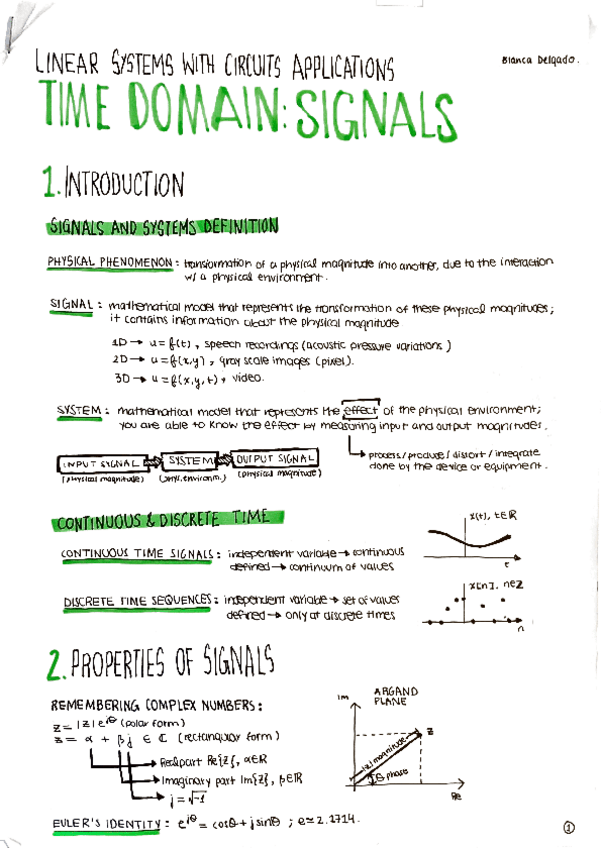 Bianca Delgado.
LINEAR SYSTEMS WITH CIRCUITS APPLICATIONS
TIME DOMAIN: SIGNALS
1. INTRODUCTION
SIGNALS AND SYSTEMS DEFINITION
PHYSICAL PHENOMENON: transformation of a physical magnitude into another, due to the interaction
w/ a physical environment.
SIGNAL: mathematical model that represents the transformation of these physical magnitudes;
it contains information about the physical magnitude
1D → u = f(t), speech recordings (acoustic pressure variations)
2D → u = f(x,y), gray scale images (pixel).
3D → u = f(x,y,t), video.
SYSTEM: mathematical model that represents the effect of the physical environment;
you are able to know the effect by measuring input and output magnitudes.
process/produce/distort/integrate
done by the device or equipment.
INPUT SIGNAL ⇒ SYSTEM ⇒ OUTPUT SIGNAL
(physical magnitude) (phys. environm.) (physical magnitude)
CONTINUOUS & DISCRETE TIME
CONTINUOUS TIME SIGNALS: independent variable → continuous
defined → continuum of values
x(t), t∈ℝ
t
DISCRETE TIME SEQUENCES: independent variable → set of values
defined → only at discrete times
x[n], n∈Z
n
2. PROPERTIES OF SIGNALS
REMEMBERING COMPLEX NUMBERS:
z = |z| e^jθ (polar form)
z = α + βj ∈ ℂ (rectangular form)
Real part Re{z}, α∈ℝ
Imaginary part Im{z}, β∈ℝ
j = √-1
ARGAND
PLANE
Im
z
|z| magnitude
θ phase
Re
EULER'S IDENTITY: e^jθ = cosθ + j sinθ ; e≃2.1714.
1